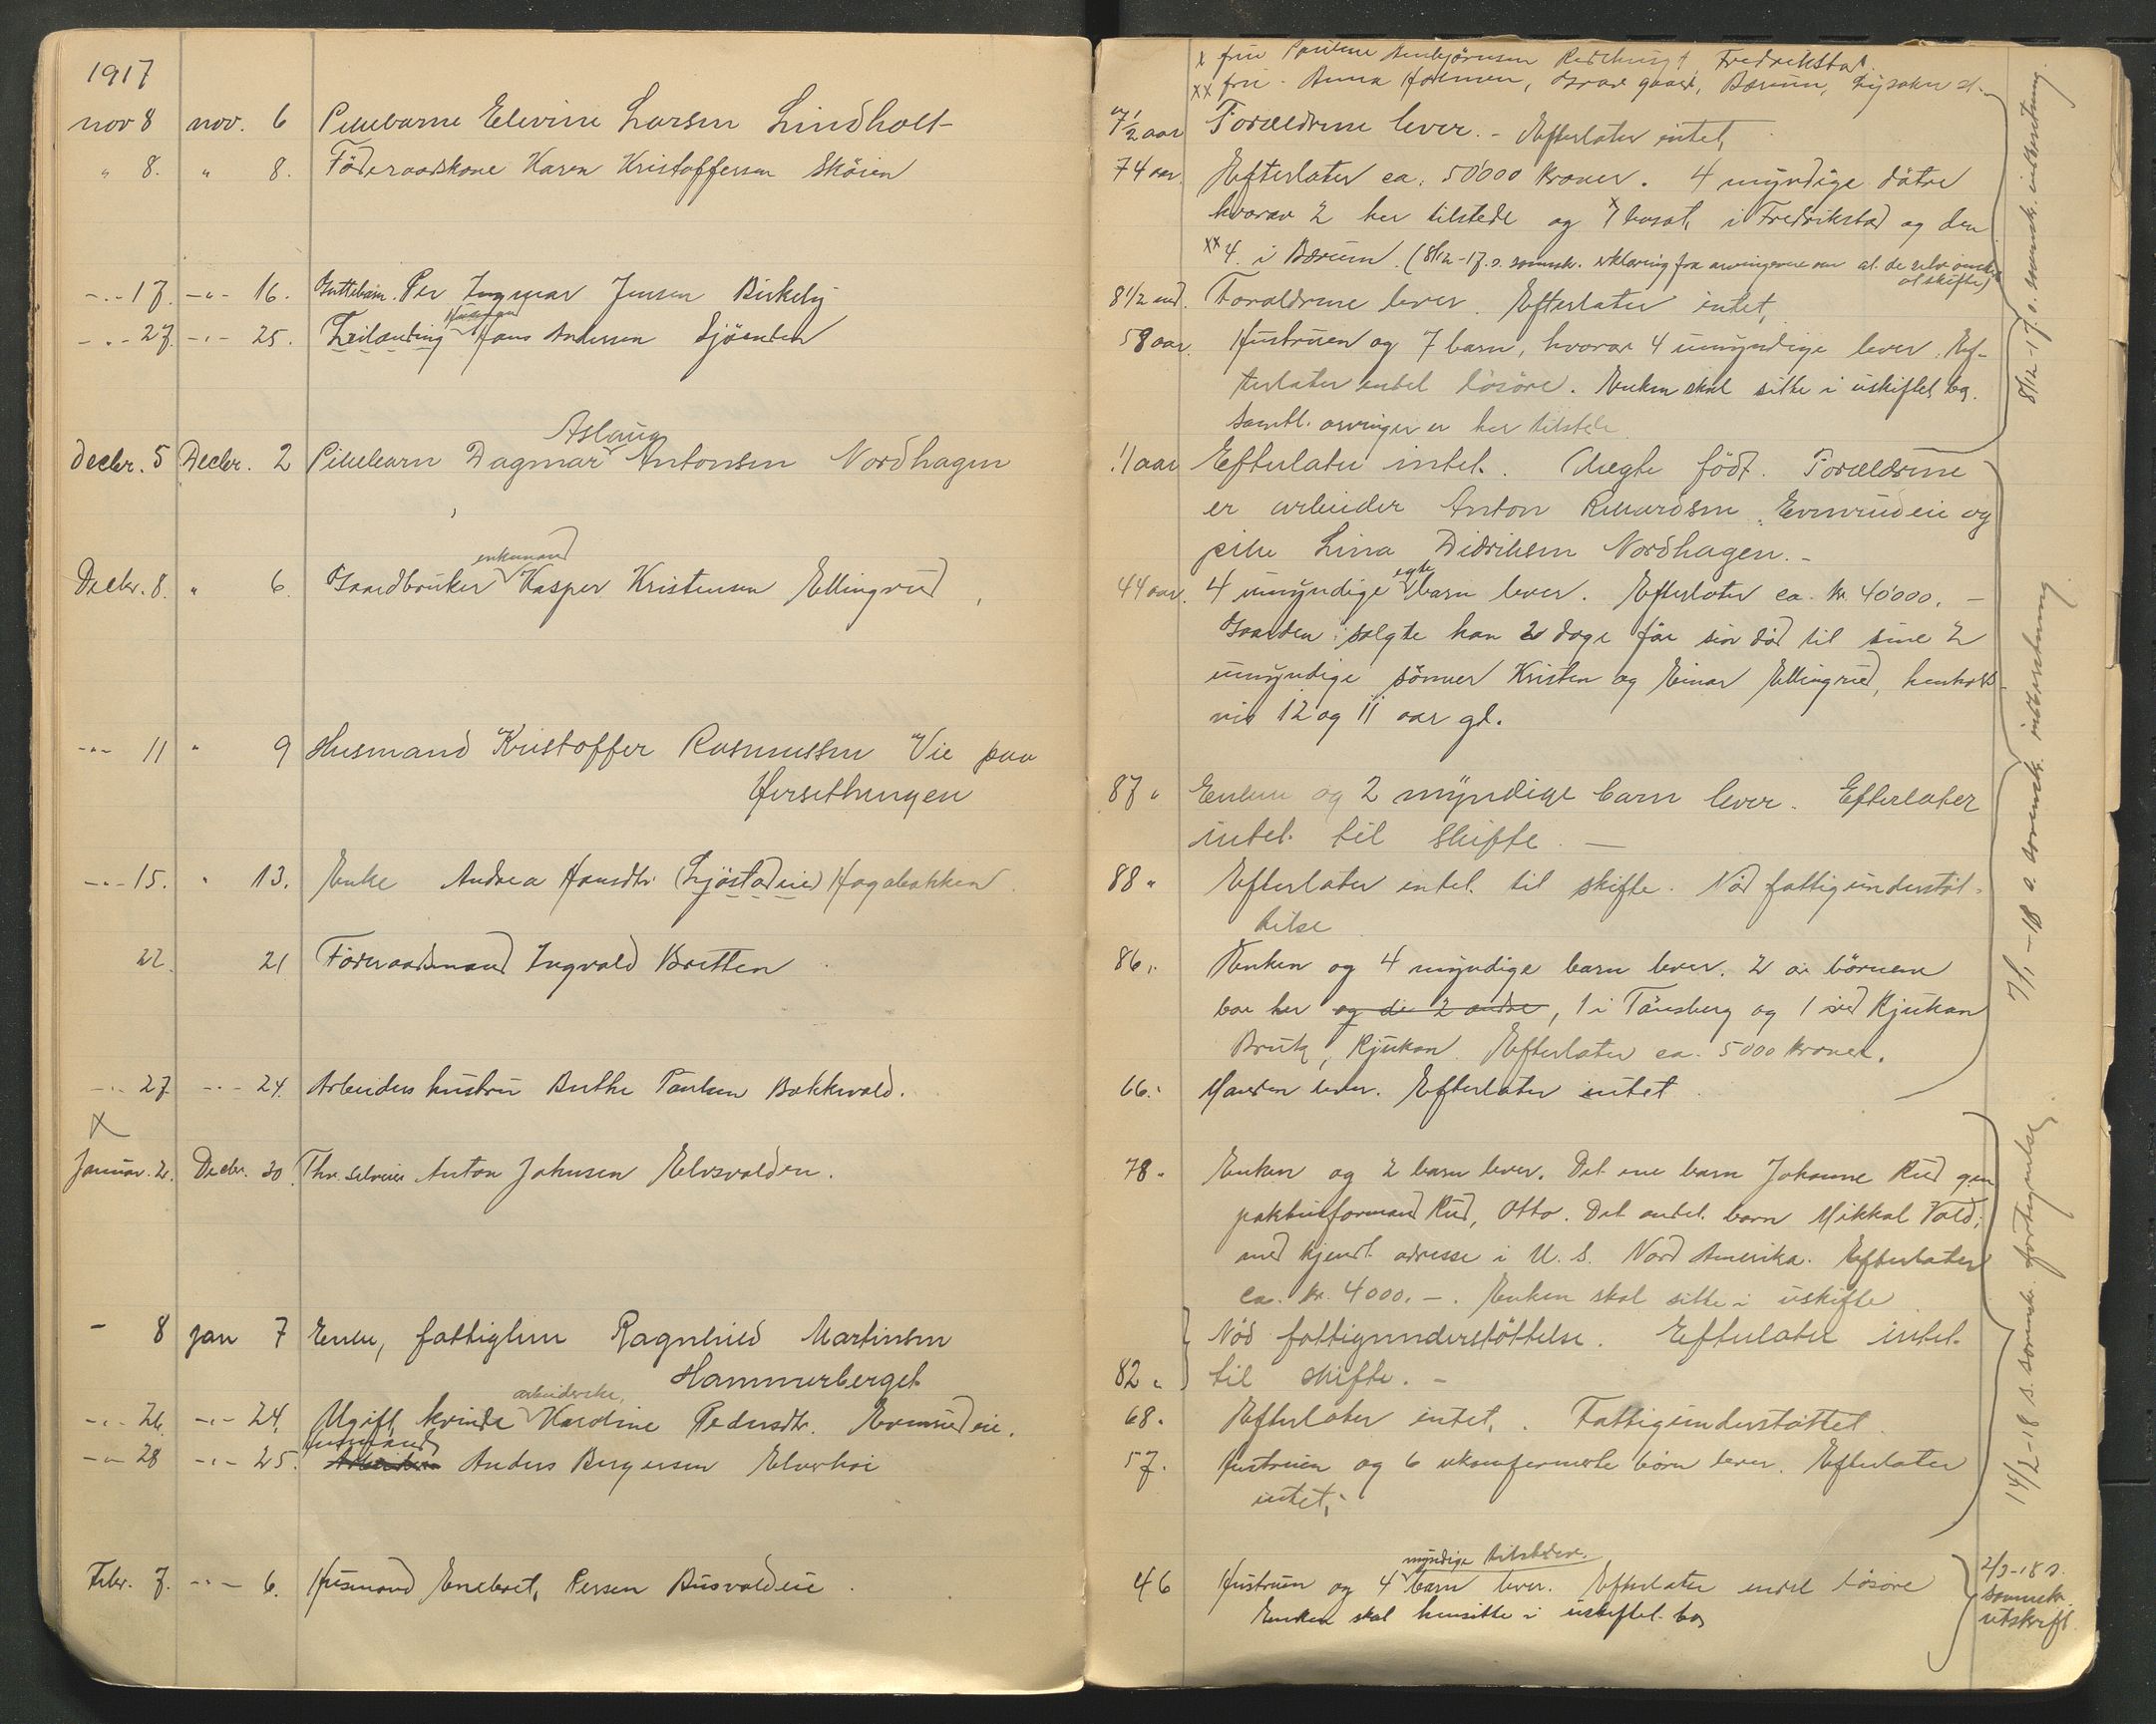 1917
nov 8 nov. 6 Pikebarne Elevine Larsen Lindholt
" 8. " 8. Föderaadskone Karen Kristoffersen Sköien
-"- 17. -"- 16. Guttebarn Per Ingmar Jensen Birkely
-"- 27. -"- 25. Leilending Hans Andersen Sjöenden
Aslaug
Decbr. 5 Decbr. 2 Pikebarn Dagmar Antonsen Nordhagen
enkemand
Decbr. 8. " 6. Gaardbruker Kasper Kristensen Ellingrud
-"- 11 " 9 Husmand Kristoffer Rasmussen Vie paa
Hersethengen
-"- 15. " 13. Enke Andrea Hansdtr. (Ljöstadeie) Hagabakken.
22. 21 Föderaadsmand Ingvald Bratten
-"- 27 -"- 24. Arbeiders hustru Berthe Paulsen Bakkevold.
X
Januar 2. Decbr. 30. Fhv. selveier Anton Johnsen Elvsvolden.
- 8 jan 7 Enke, fattiglem Ragnhild Martinsen
Hammerberget
arbeiderske,
-"- 26. -"- 24. Ugift kvinde Kardine Pedersdtr. Evenrudeie.
Husmand
-"- 28 -"- 25. Anders Bergersen Elverhöi
Febr. 7. -"- 6. Husmand Enebret Persen Busvoldeie.
x fru Pauline Fredrikstad.
xx fru Anna Holmen, gaard, Bærum, Lysaker st.
7 1/2 aar Forældrene lever. - Efterlater intet.
74 aar. Efterlater ca. 50'000 kroner. 4 myndige döttre
hvorav 2 her tilstede og x 1 bosat i Fredrikstad og den
xx 4. i Bærum. (8/12-17. s. sornsk. erklæring fra arvingerne om at de selv önsker
at skifte)
8 1/2 md. Forældrene lever. Efterlater intet.
58 aar. Hustruen og 7 barn, hvorav 4 umyndige lever. Ef-
terlater endel lösöre. Enken skal sitte i uskiftet bo.
Samtl. arvinger er her tilstede
11 aar Efterlater intet. Uegte födt. Forældrene
er arbeider Anton Rikardsen Evenrudeie og
pike Lina Didriksen Nordhagen. -
egte
44 aar. 4 umyndige barn lever. Efterlater ca. kr. 40'000. -
Gaarden solgte han 20 dage för sin död til sine 2
umyndige sönner Kristen og Einar Ellingrud, henholds-
vis 12 og 11 aar gl.
87 " Enken og 2 myndige barn lever. Efterlater
intet til skifte. -
88 " Efterlater intet til skifte. Nöd fattigunderstöt-
telse
86. " Enken og 4 myndige barn lever. 2 av börnene
bor her og de 2 andre, 1 i Tönsberg og 1 ved Rjukan
Bruk, Rjukan. Efterlater ca. 5000 kroner.
66. " Manden lever. Efterlater intet.
78. " Enken og 2 barn lever. Det ene barn Johanne Rud gm
pakhusformand Rud, Otto. Det andet barn Mikkal Vold,
med kjendt adresse i U. S. Nord Amerika. Efterlater
ca. kr. 4000. -. Enken skal sitte i uskifte
Nöd fattigunderstöttelse. Efterlater intet
82 " til skifte. -
68. " Efterlater intet. Fattigunderstöttet.
57. Hustruen og 6 ukonfirmerte börn lever. Efterlater
intet. -
myndige tilstedev.
46 Hustruen og 4 barn lever. Efterlater endel lösöre
Enken skal hensitte i uskiftet bo
8/12-17 s. sornsk. indberetning
7/1-18 s. sorensk. indberetning
14/2-18 s. sorensk. fortegnelse
2/3-18 s.
sorensk.
utskrift